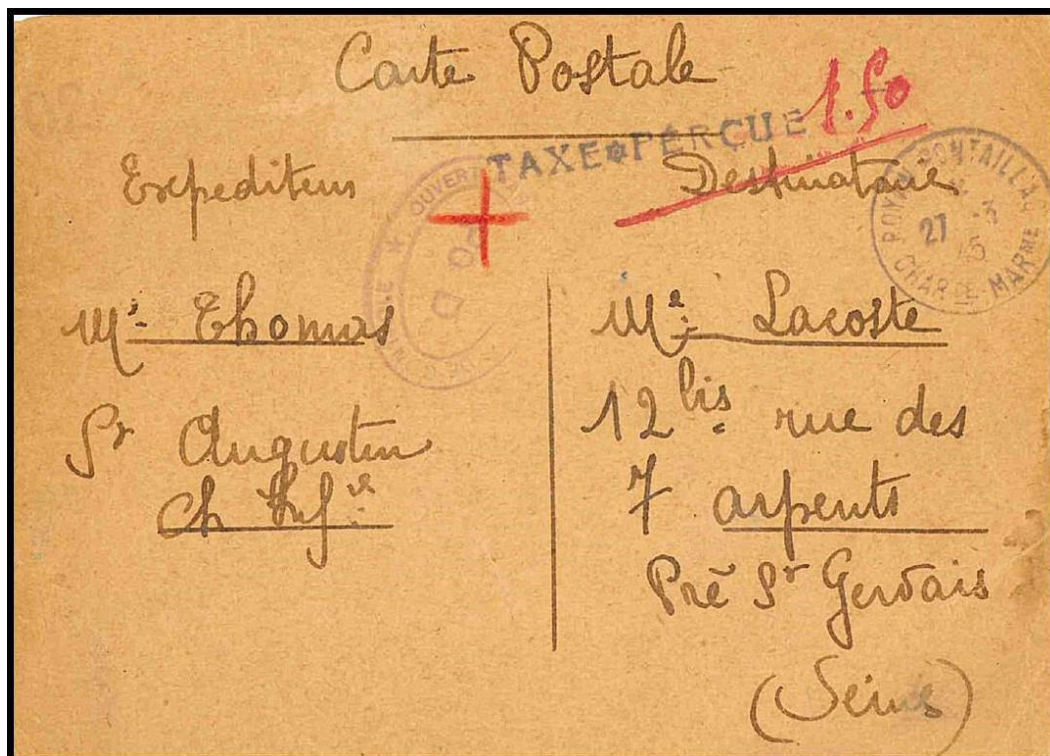 Carte Postale
1.50
TAXE PERÇUE
Expediteur
Destinataire
OUVERT
ROYAN PONTAILLAC
27 -3
45
CHARTE-MARME
Mr Thomas
St Augustin
Ch
Me Lacoste
12 bis rue des
7 arpents
Pré St Gervais
(Seine)